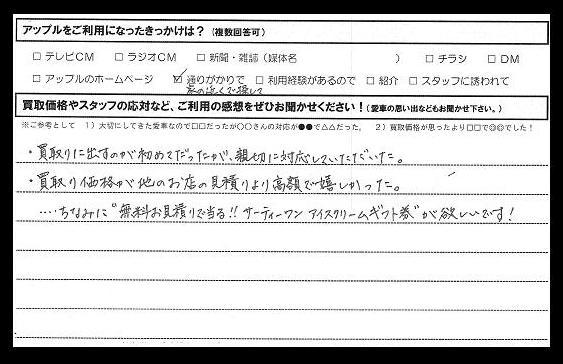 アップルをご利用になったきっかけは？（複数回答可）
□ テレビCM □ ラジオCM □ 新聞・雑誌（媒体名 ） □ チラシ □ DM
□ アップルのホームページ ☑ 通りがかりで □ 利用経験があるので □ 紹介 □ スタッフに誘われて
家の近くで探して
買取価格やスタッフの応対など、ご利用の感想をぜひお聞かせください！（愛車の思い出などもお聞かせ下さい。）
※ご参考として 1）大切にしてきた愛車なので□□だったが〇〇さんの対応が●●で△△だった。 2）買取価格が思ったより□□で◎◎でした！
・買取りに出すのが初めてだったが、親切に対応していただいた。
・買取り価格が他のお店の見積りより高額で嬉しかった。
....ちなみに"無料お見積りで当る!! サーティーワン アイスクリームギフト券"が欲しいです！